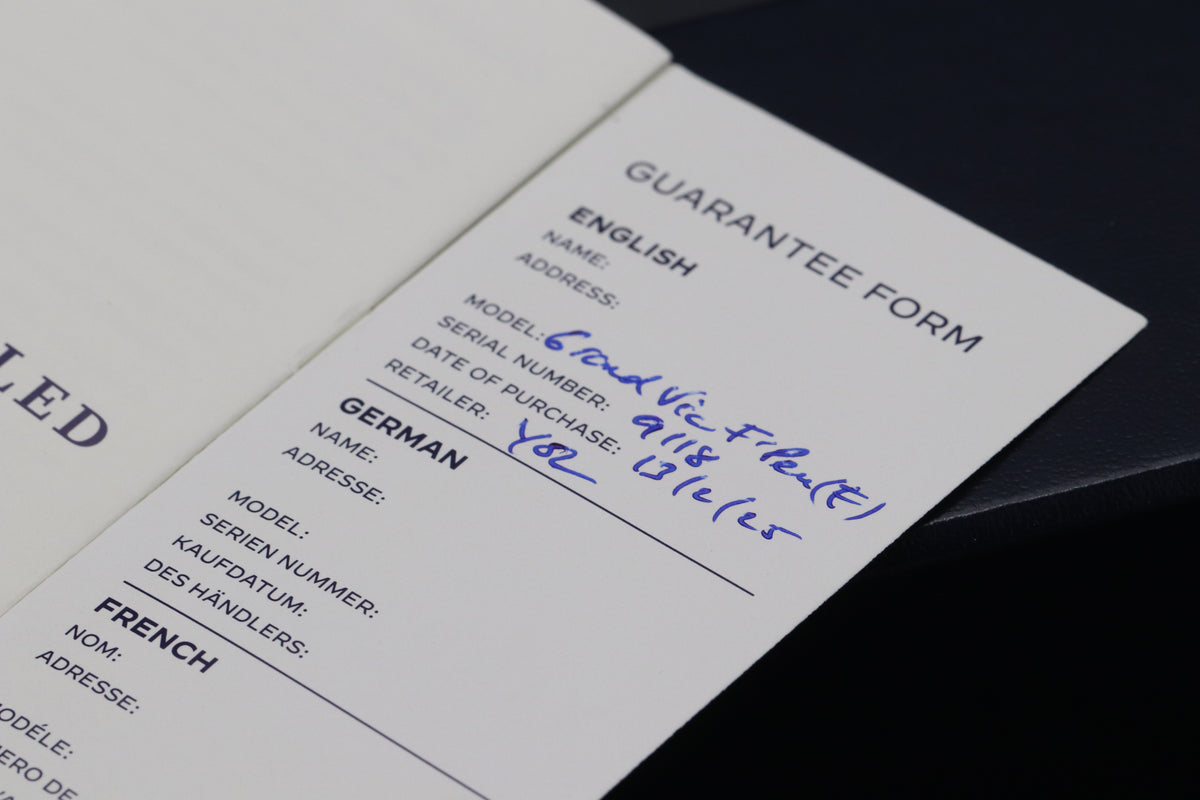 LED
GUARANTEE FORM
ENGLISH
NAME:
ADDRESS:
MODEL: Grand Vic F'Pen (E)
SERIAL NUMBER: 9118
DATE OF PURCHASE: 13/2/25
RETAILER: YOL
GERMAN
NAME:
ADRESSE:
MODEL:
SERIEN NUMMER:
KAUFDATUM:
DES HÄNDLERS:
FRENCH
NOM:
ADRESSE:
ODÉLE:
ERO DE